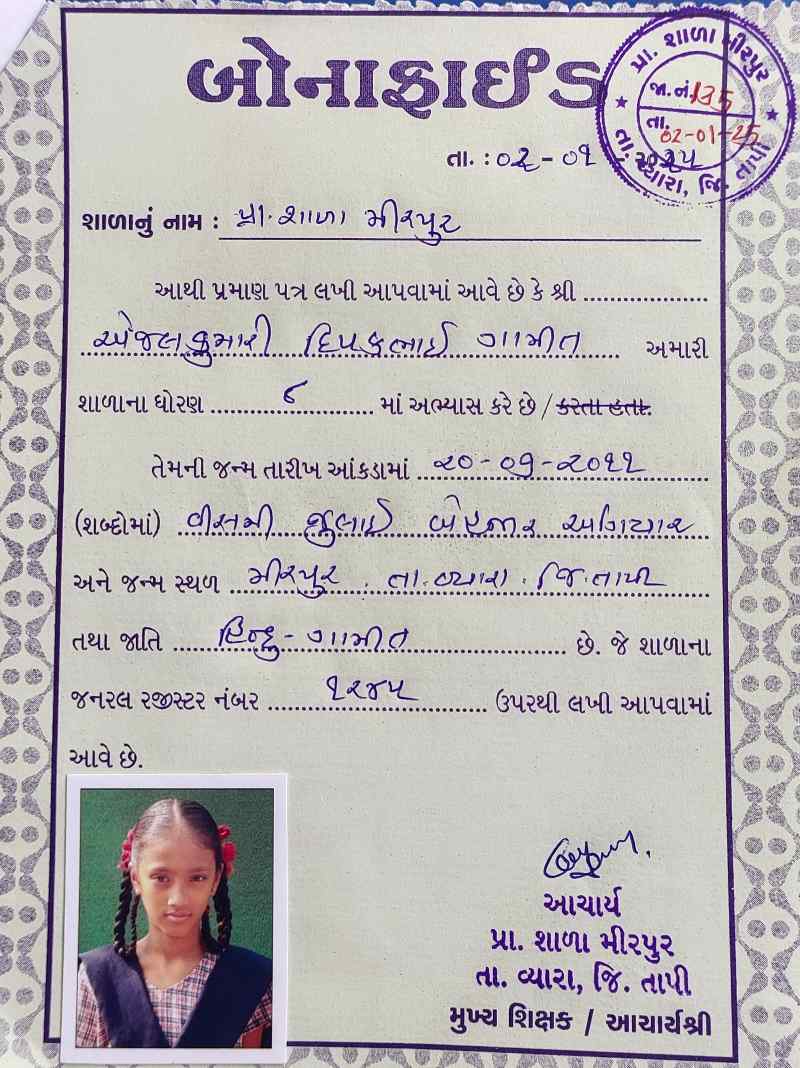 બોનાફાઈડ
પ્રા. શાળા મીરપુર
જા.નં. 135
તા. 02-01-25
તા. વ્યારા, જિ. તાપી
તા. : ૦૨ - ૦૧ - ૨૦૨૫
શાળાનું નામ : પ્રા. શાળા મીરપુર
આથી પ્રમાણ પત્ર લખી આપવામાં આવે છે કે શ્રી ..................
એન્જલકુમારી દિપકભાઈ ગામીત અમારી
શાળાના ધોરણ ૮ માં અભ્યાસ કરે છે / કરતા હતા.
તેમની જન્મ તારીખ આંકડામાં ૨૦-૦૭-૨૦૧૧
(શબ્દોમાં) વીસમી જુલાઈ બે હજાર અગિયાર
અને જન્મ સ્થળ મીરપુર. તા. વ્યારા. જિ. તાપી
તથા જાતિ હિન્દુ - ગામીત છે. જે શાળાના
જનરલ રજીસ્ટર નંબર ૧૨૪૫ ઉપરથી લખી આપવામાં
આવે છે.
આચાર્ય
પ્રા. શાળા મીરપુર
તા. વ્યારા, જિ. તાપી
મુખ્ય શિક્ષક / આચાર્યશ્રી